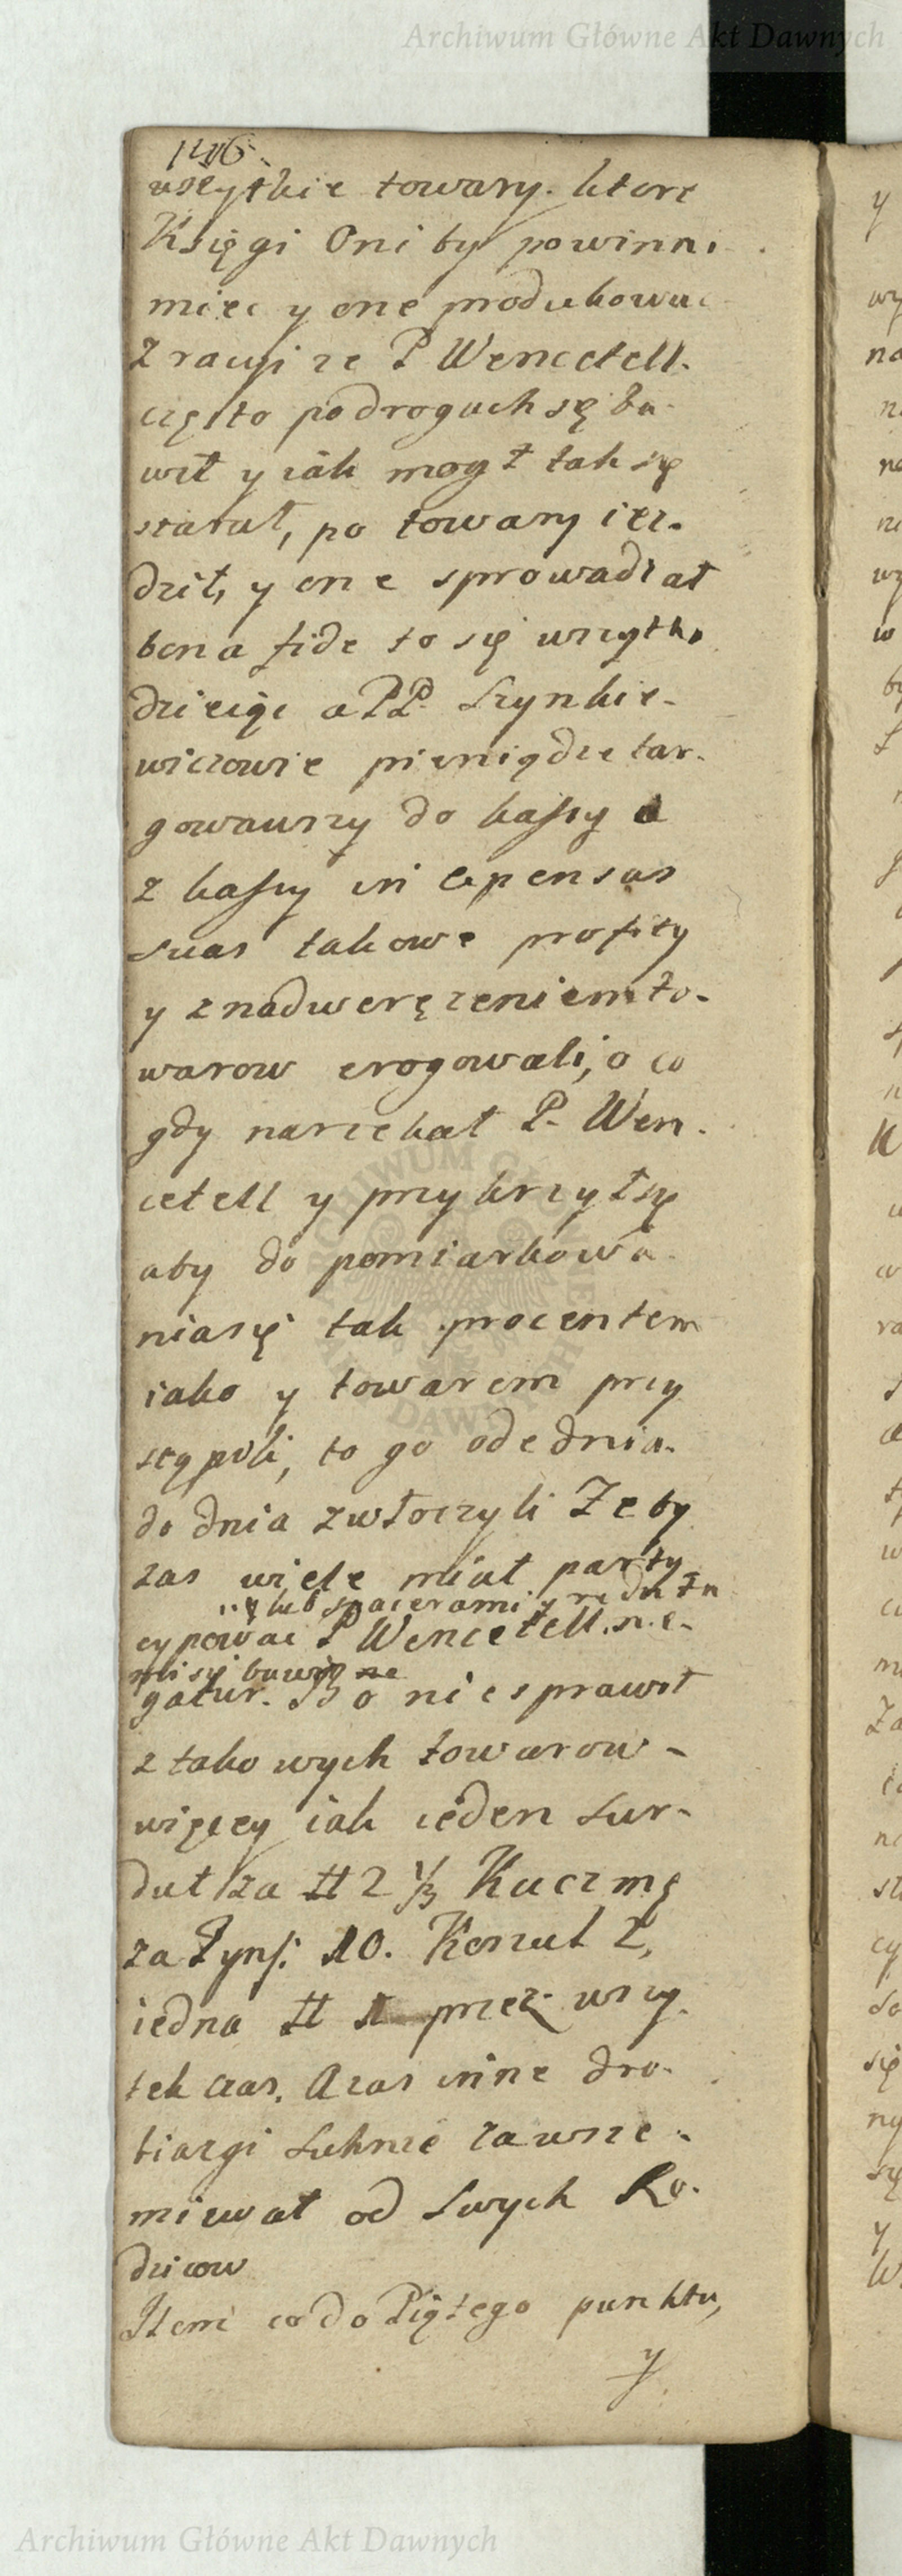 Archiwum Główne Akt Dawnych
146
wszytkie towary. ktore
Księgi Oni by powinni
miec y one produkowac
Z racyi ze P Wencetell.
częſto po drogach sę ba-
wił y iák mogł tak się
starał, po towary iez-
dził, y one sprowadzał
bona fide to się wszytko
dzieię a PP. Szynkie-
wiczowie pieniądze tar-
gowawszy do kaſsy a
z kaſsy in expensas
suas takowe profity
y z nadweręzeniem to-
warow erogowali, o co
gdy narzekał P. Wen-
cetell y przykrzył się
aby do pomiarkowa-
nia się tak procentem
iako y towarem przy
stąpili, to go ode dnia
do dnia zwłoczyli Ze by
zas wiele miał party
lub spacerami y
cypowac P Wencetell. ne-
bawią
gatur. Bo nie sprawił
z takowych towarow -
więcey iak ieden Sur-
dut za # 2 1/3 Kuczmę
za Tynf: 10. Koszul
iedna # 1 przez wszy-
tek czas. Azas inne dro-
biazgi Suknie zawsze -
miewał od Swych Ro-
dzicow
Item co do Piątego punktu,
y
Archiwum Główne Akt Dawnych